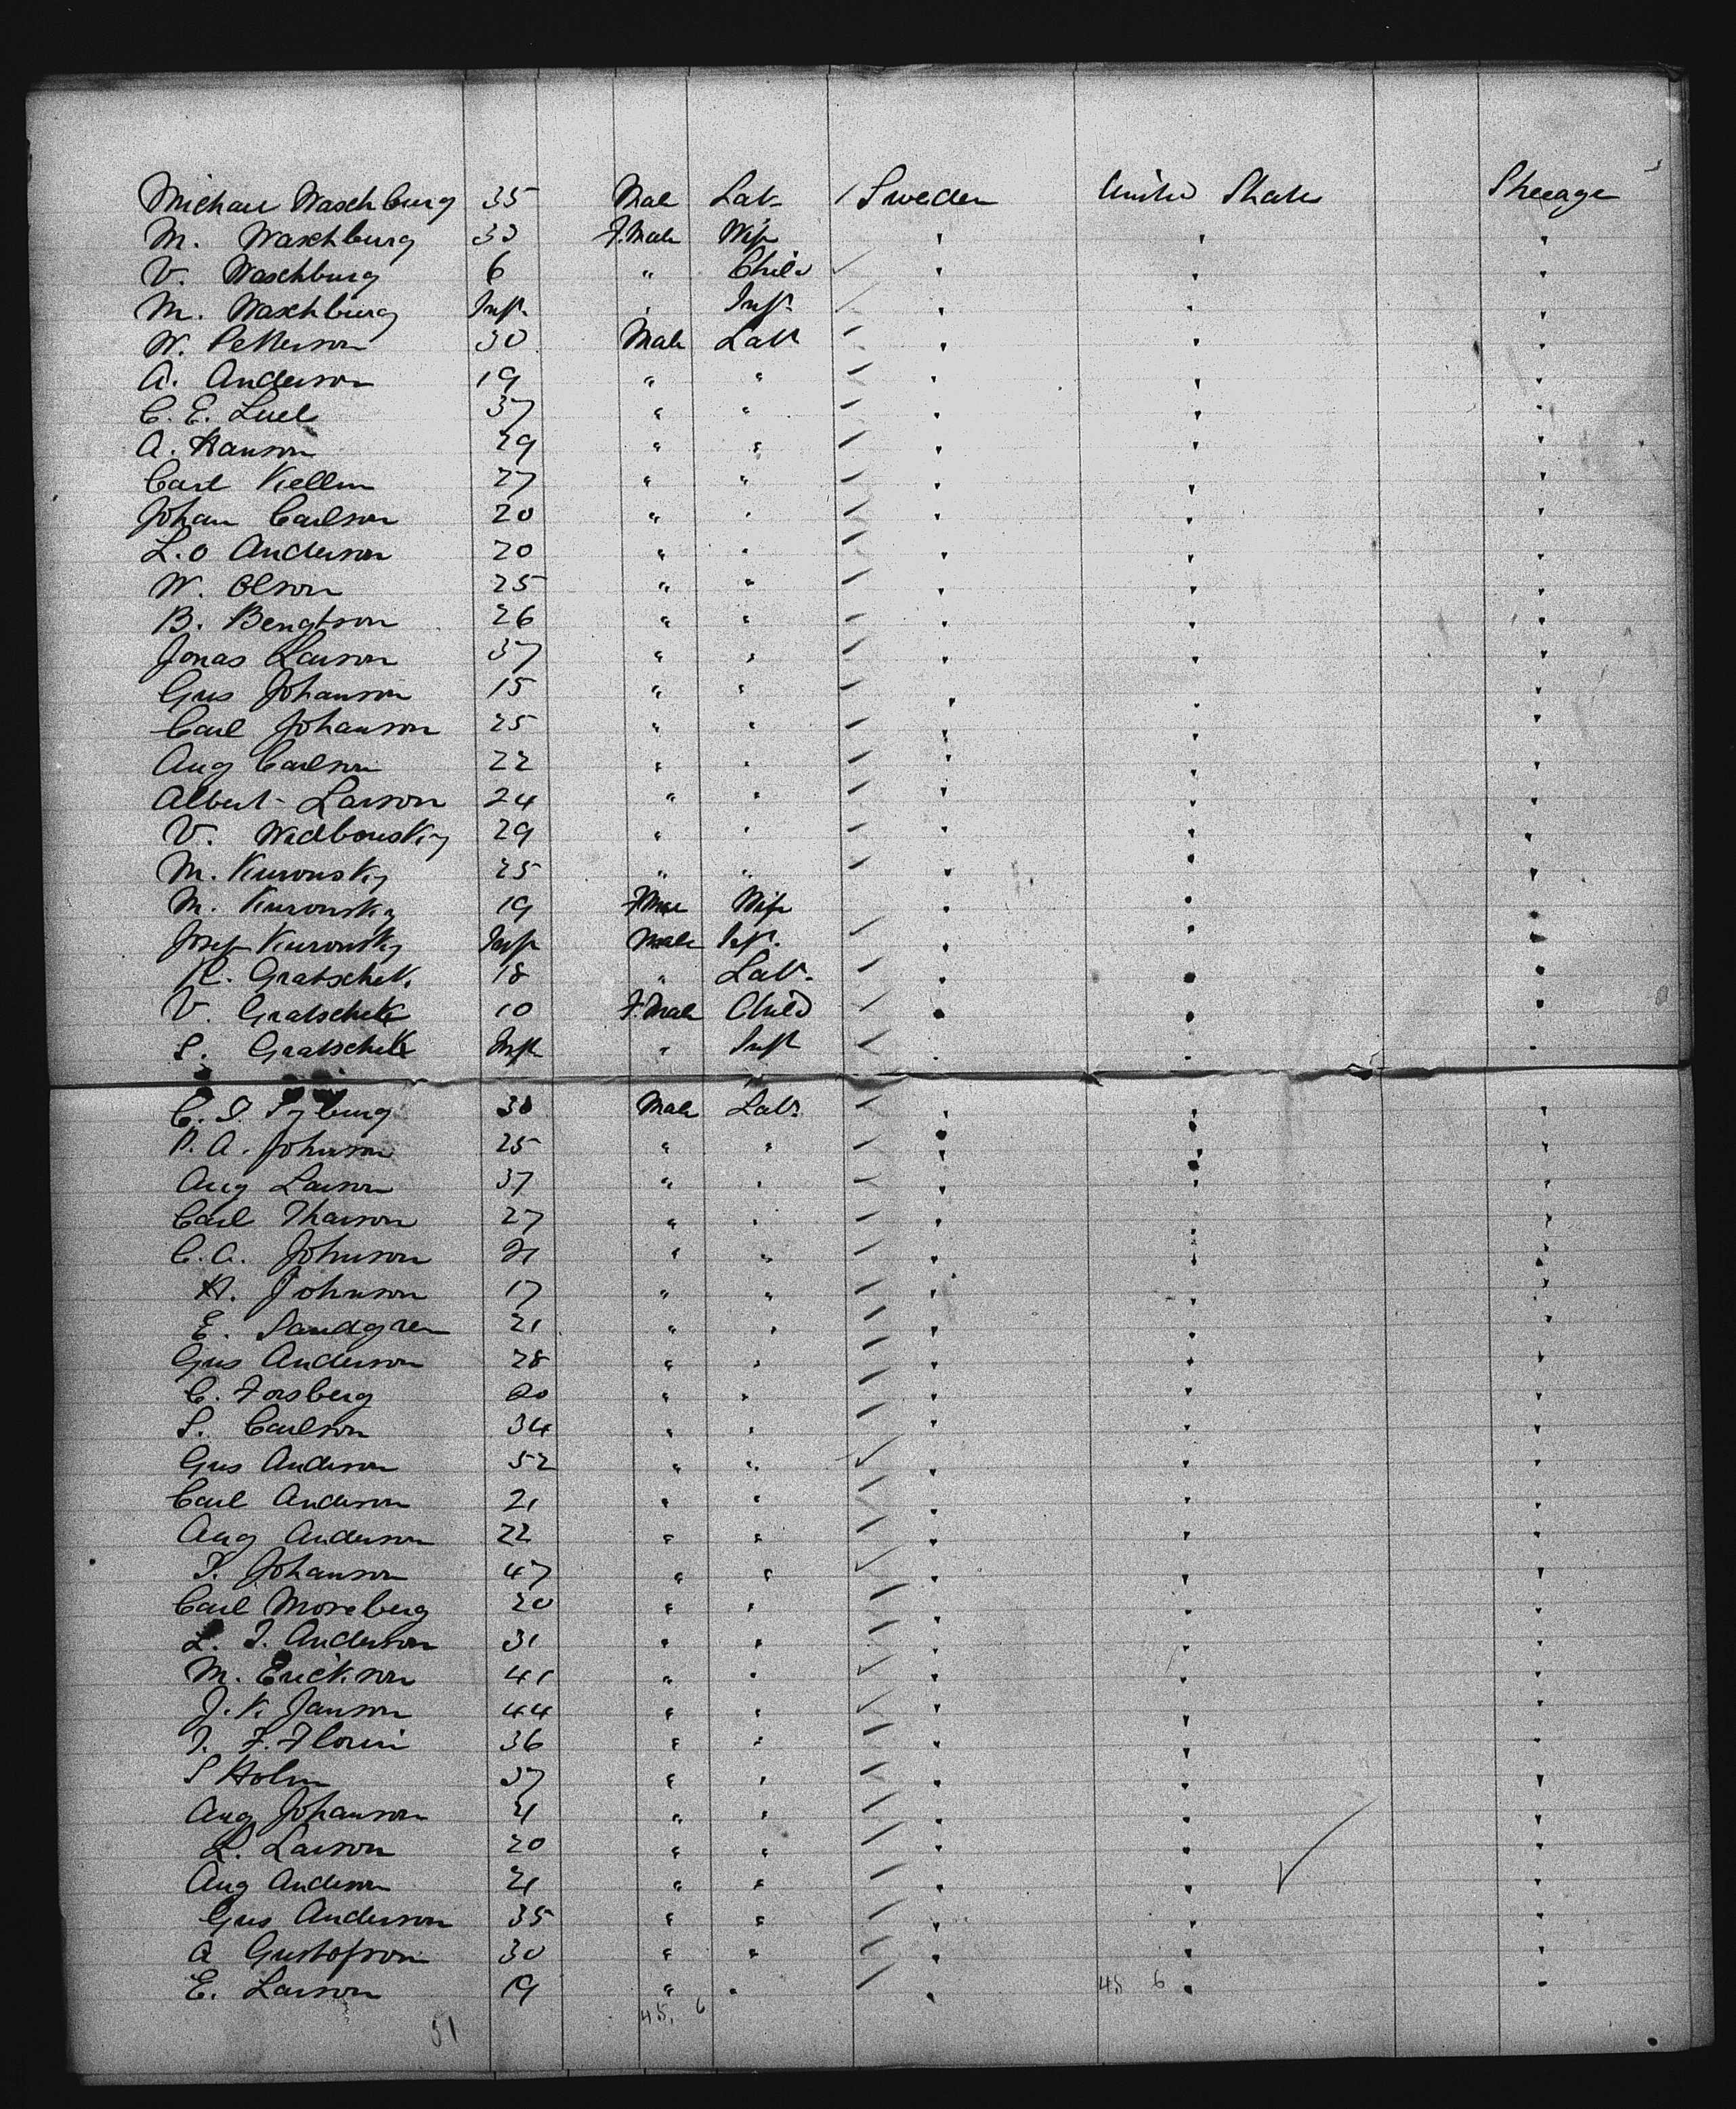 Michael Waschburg 35 Male Lab. / Sweden United States Steerage
M. Waschburg 33 F.Male Wife " " "
V. Waschburg 6 " Child ✓ " " "
M. Waschburg Inft. " Inft. ✓ " " "
W. Petterson 30 Male Labr / " " "
A. Anderson 19 " " / " " "
C. E. Luel 37 " " / " " "
A. Hanson 29 " " / " " "
Carl Kellm 27 " " / " " "
Johan Carlson 20 " " / " " "
L. O Anderson 20 " " / " " "
W. Olson 25 " " / " " "
B. Bengtson 26 " " / " " "
Jonas Larson 37 " " / " " "
Gus Johanson 15 " " / " " "
Carl Johanson 25 " " / " " "
Aug Carlson 22 " " / " " "
Albert Larson 24 " " / " " "
V. Wadbousky 29 " " / " " "
M. Kuronsky 25 " " / " " "
M. Kuronsky 19 FMale Wife " " "
Josef Kuronsky Inft Male Inft. / " " "
K. Gratschek 18 " Labr. / " " "
V. Gratschek 10 F.Male Child / " " "
S. Gratschek Inft " Inft / " " "
C. S. Tyburg 30 Male Labr. / " " "
P. A. Johnson 25 " " / " " "
Aug Larson 37 " " / " " "
Carl Tharson 27 " " / " " "
C. A. Johnson 21 " " / " " "
A. Johnson 17 " " / " " "
E. Sandgren 21 " " / " " "
Gus Anderson 28 " " / " " "
C. Forsberg 20 " " / " " "
S. Carlson 34 " " / " " "
Gus Anderson 52 " " ✓ " " "
Carl Anderson 21 " " / " " "
Aug Anderson 22 " " / " " "
P. Johanson 47 " " ✓ " " "
Carl Moreberg 20 " " / " " "
L. J. Anderson 31 " " / " " "
M. Erickson 41 " " ✓ " " "
J. K. Janson 44 " " ✓ " " "
J. F. Florin 36 " " / " " "
S Holm 37 " " / " " "
Aug Johanson 21 " " / " " "
L. Larson 20 " " / " " "
Aug Anderson 21 " " / " ✓ " "
Gus Anderson 35 " " / " " "
A Gustofson 30 " " / " " "
E. Larson 19 " " / " 45 6 " "
51 45. 6